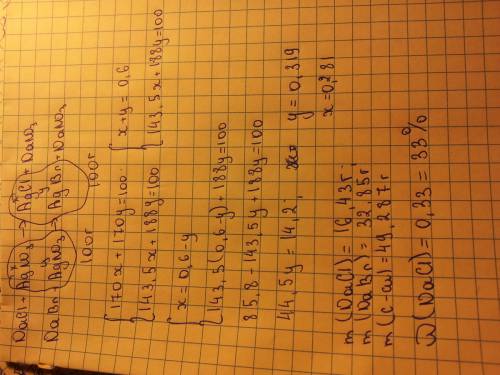 NaCl + AgNO₃ → AgCl + NaNO₃
x x
NaBr + AgNO₃ → AgBr + NaNO₃
y y
100г 100г
{ 170x + 170y = 100
{ 143,5x + 188y = 100
{ x + y = 0,6
{ 143,5x + 188y = 100
{ x = 0,6 - y
{ 143,5(0,6 - y) + 188y = 100
85,8 - 143,5y + 188y = 100
44,5y = 14,2; y = 0,319
x = 0,281
m (NaCl) = 16,43г;
m (NaBr) = 32,85г;
m (с-си) = 49,287г
ω (NaCl) = 0,33 = 33%